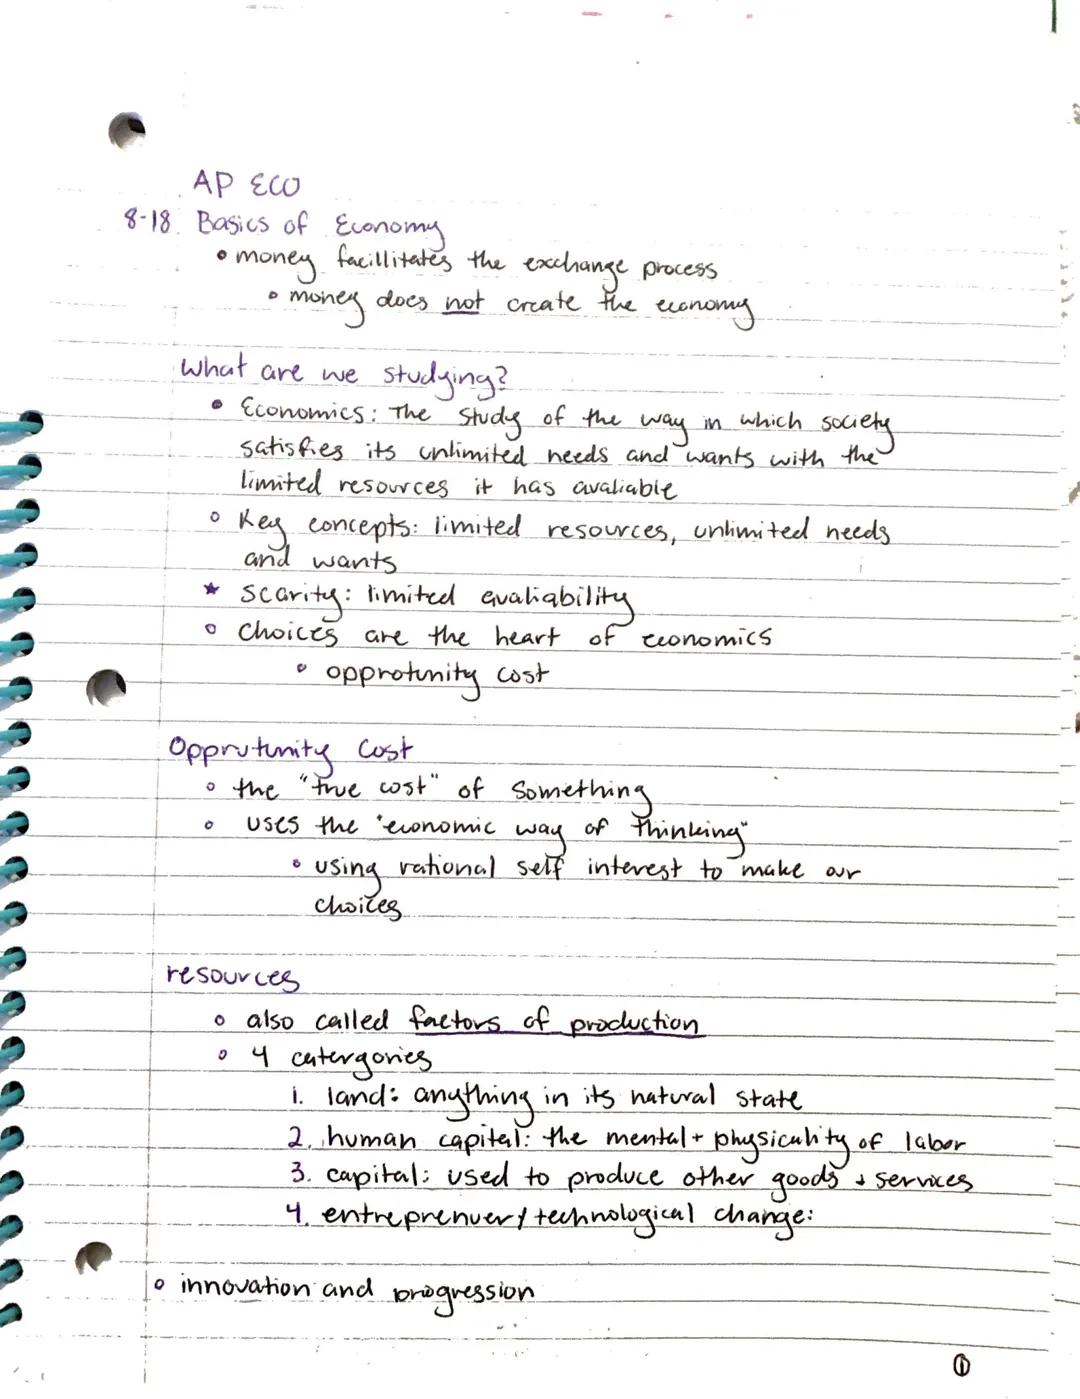 AP ECO
8-18 Basics of Economy
• money facillitates the exchange process
• money does not create the economy
What are we studying?
• Economics: The study of the way in which society
satisfies its unlimited needs and wants with the
limited resources it has avaliable
• Key concepts: limited resources, unlimited needs
and wants
★ Scarity: limited avaliability
• Choices are the heart of economics
• opprotunity cost
Opprutunity Cost
• the "true cost" of something
• uses the "economic way of thinking"
• using rational self interest to make our
choices
resources
• also called factors of production
• 4 catergories
1. land: anything in its natural state
2. human capital: the mental + physicality of labor
3. capital: used to produce other goods + services
4. entreprenuer / technological change:
• innovation and progression
1